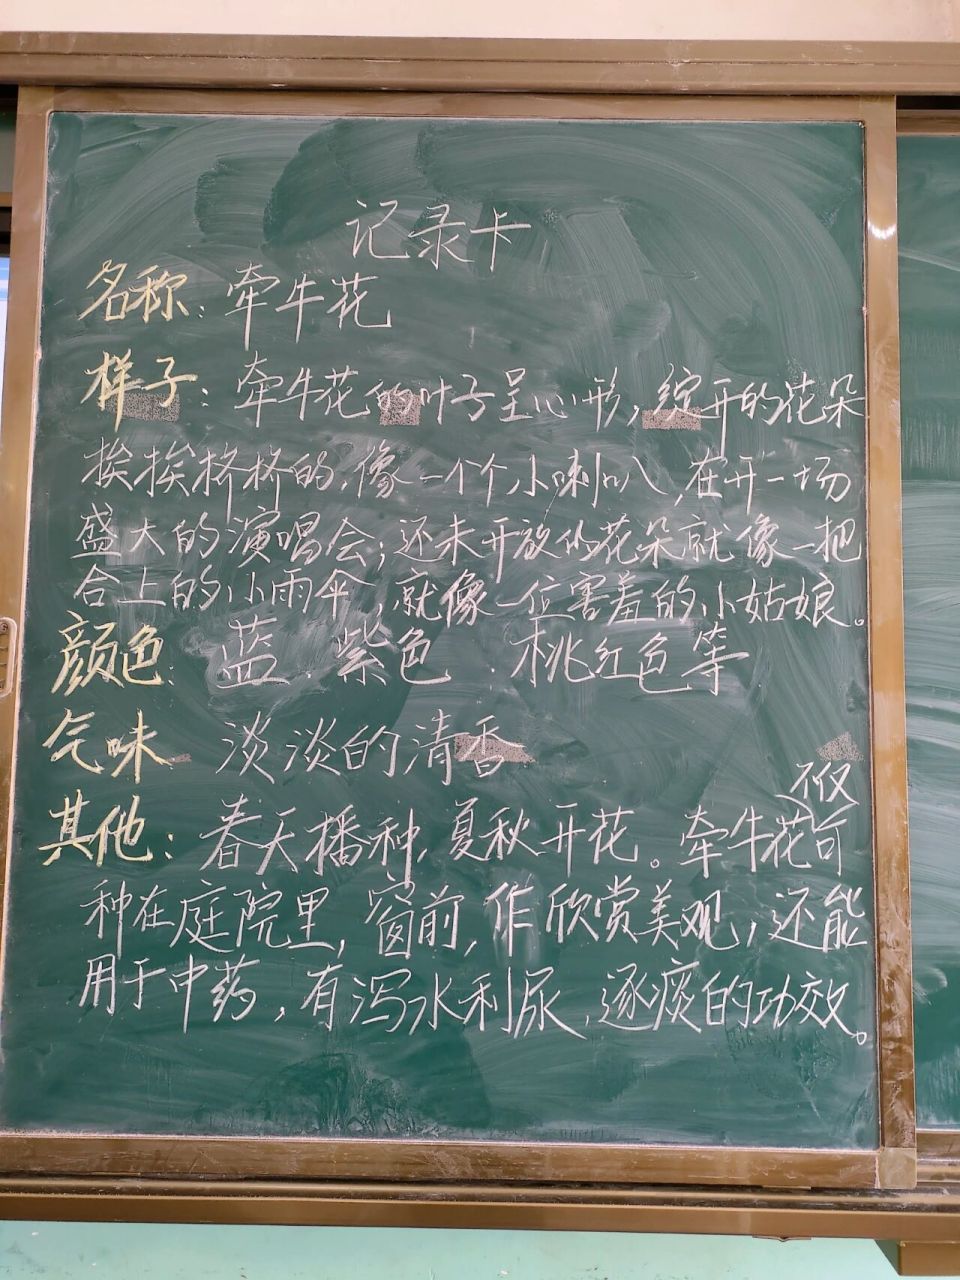 记录卡
名称：牵牛花
样子：牵牛花的叶子呈心形，绽开的花朵
挨挨挤挤的，像一个个小喇叭，在开一场
盛大的演唱会；还未开放的花朵就像一把
合上的小雨伞，就像一位害羞的小姑娘。
颜色：蓝、紫色、桃红色等
气味 淡淡的清香
不仅
其他：春天播种，夏秋开花。牵牛花可
种在庭院里，窗前，作欣赏美观，还能
用于中药，有泻水利尿，逐痰的功效。